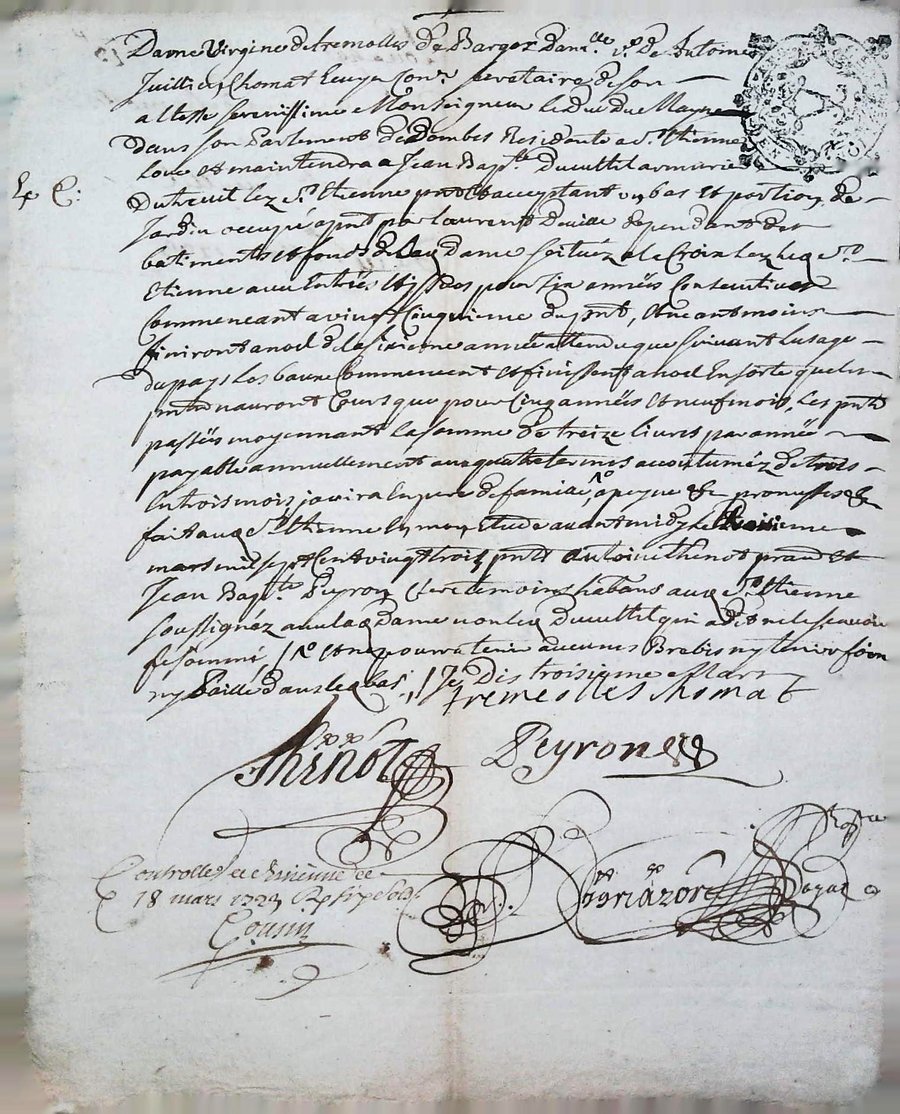 Dame Virgine de tremolles de Barges dam.lle v.e de Antoine
Jullien Chomat Ecuyer Con.r secretaire de son
altesse serenissime Monseigneur le duc du Mayne
dans son Parlement de dombes Residente a S.t Etienne
loue et maintendra a Jean Bap.te
Ex C:
du treuil lez S.t Etienne p.nt et acceptant un bas et portion de
Jardin occupé a p.nt par laurent dependant des
batiments et fonds de lad dame scituez a la Croix lez led S.t
Etienne avec entrées et issües pour six années Consecutives
Commencant a vingt Cinquieme du p.nt, et neantmoins
finiront a noel de la sixieme année attendu que suivant lusage
du pays les baux Commencent et finissent a noel En sorte que les
p.ntes nauront Cours que pour Cinq années et neuf mois, Les p.ntes
passées moyennant la somme de treize livres par année
payable annuellement aux quatre termes accoutuméz de trois
En trois mois, jouira En pere de famille, a peyne &c promesses &c
fait aud S.t Etienne En mon Etude avant midy le troisieme
mars mil sept Cent vingt trois p.nts Antoine thenot prat et
Jean Bap.te Peyron Clerc temoins habitans aud S.t Etienne
soussignéz avec lad dame non led qui a dit ne le scavoir
fe sommé, et ne pourra tenir aucunes Brebis ny tenir foin
ny Paille dans led bas, Je Dis troisieme Mars
tremolles Chomat
Thinot
Peyron
Controllé a St Etienne le
18 mars 1723 R
Cousin